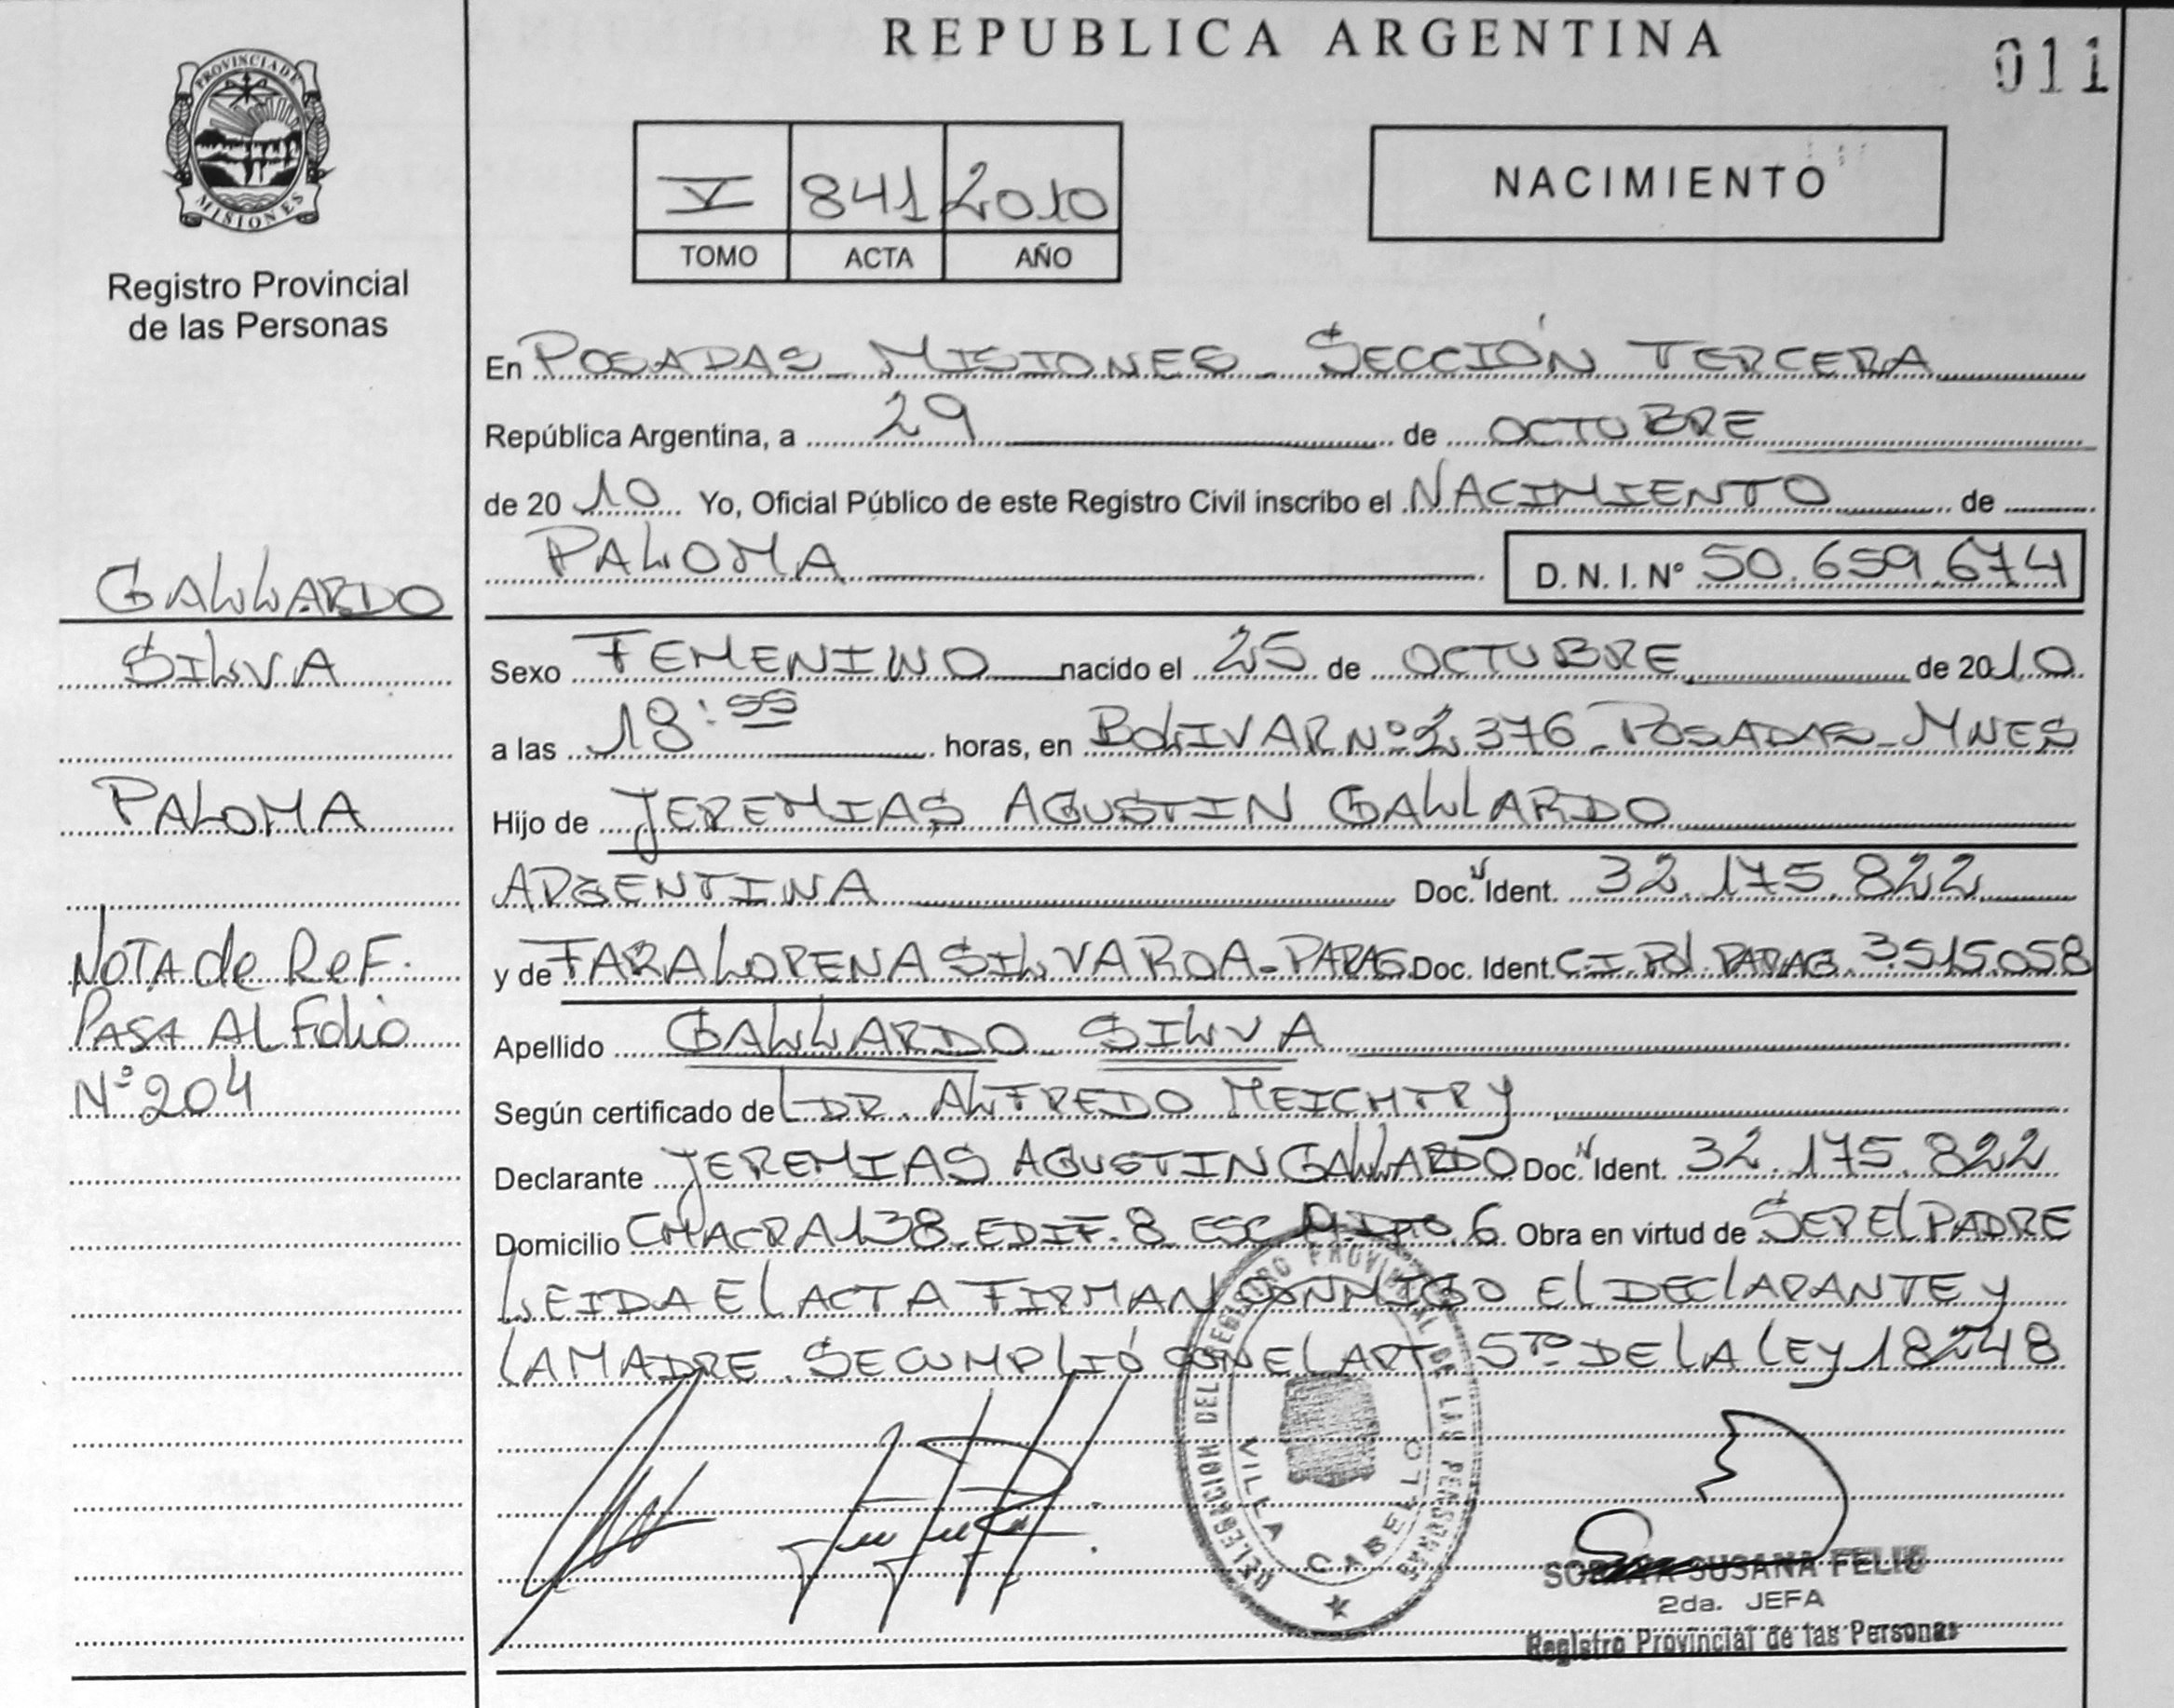 REPUBLICA ARGENTINA
011
PROVINCIA DE MISIONES
Registro Provincial
de las Personas
V 841 2010
TOMO ACTA AÑO
NACIMIENTO
En POSADAS - MISIONES - SECCIÓN TERCERA
República Argentina, a 29 de OCTUBRE
de 2010 Yo, Oficial Público de este Registro Civil inscribo el NACIMIENTO de
PALOMA D. N. I. N° 50.659.674
GALLARDO
SILVA
PALOMA
NOTA de ReF.
PASA AL Folio
N° 204
Sexo FEMENINO nacido el 25 de OCTUBRE de 2010
a las 18:55 horas, en BOLIVAR N° 2376 - POSADAS - MNES
Hijo de JEREMIAS AGUSTIN GALLARDO
ARGENTINA Doc. N Ident. 32.175.822
y de LORENA SILVA ROA - PARAG Doc. Ident. C.I. Pol. PARAG. 3.515.058
Apellido GALLARDO SILVA
Según certificado de L DR. ALFREDO MEICHTRY
Declarante JEREMIAS AGUSTIN GALLARDO Doc. N Ident. 32.175.822
Domicilio CHACRA 138 - EDIF. 8 ESC 6 Obra en virtud de SER EL PADRE
LEIDA EL ACTA FIRMAN CONMIGO EL DECLARANTE y
LA MADRE. SE CUMPLIÓ CON EL ART. 5TO DE LA LEY 18248
DELEGACION DEL REGISTRO PROVINCIAL DE LAS PERSONAS
VILLA CABELLO
SORAYA SUSANA FELIU
2da. JEFA
Registro Provincial de las Personas